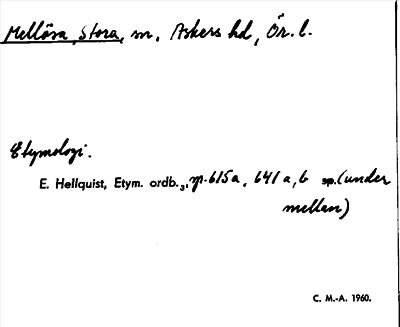 Mellösa, Stora, sn, Askers hd, Ör. l.
Etymologi.
E. Hellquist, Etym. ordb.₃, p. 615 a, 641 a, b sp. (under
mellan)
C. M.-A. 1960.